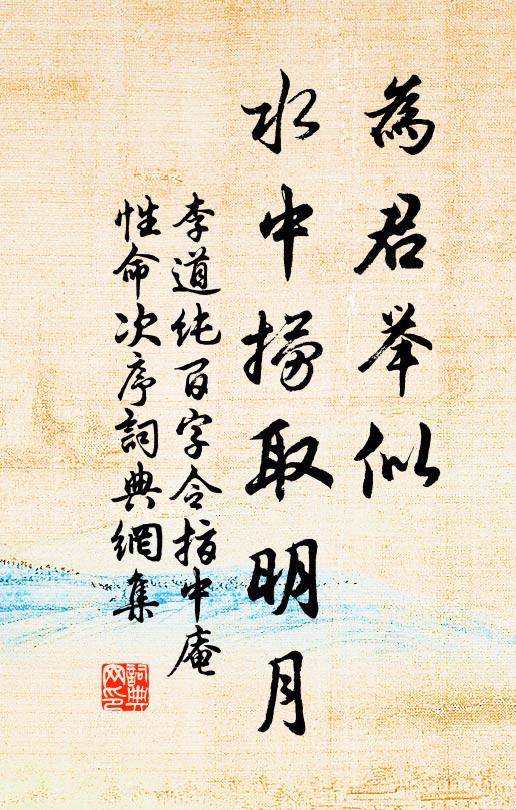 為君举似
水中撈取明月
李道纯百字令指中庵
性命次序詞典網集
詞典
网印